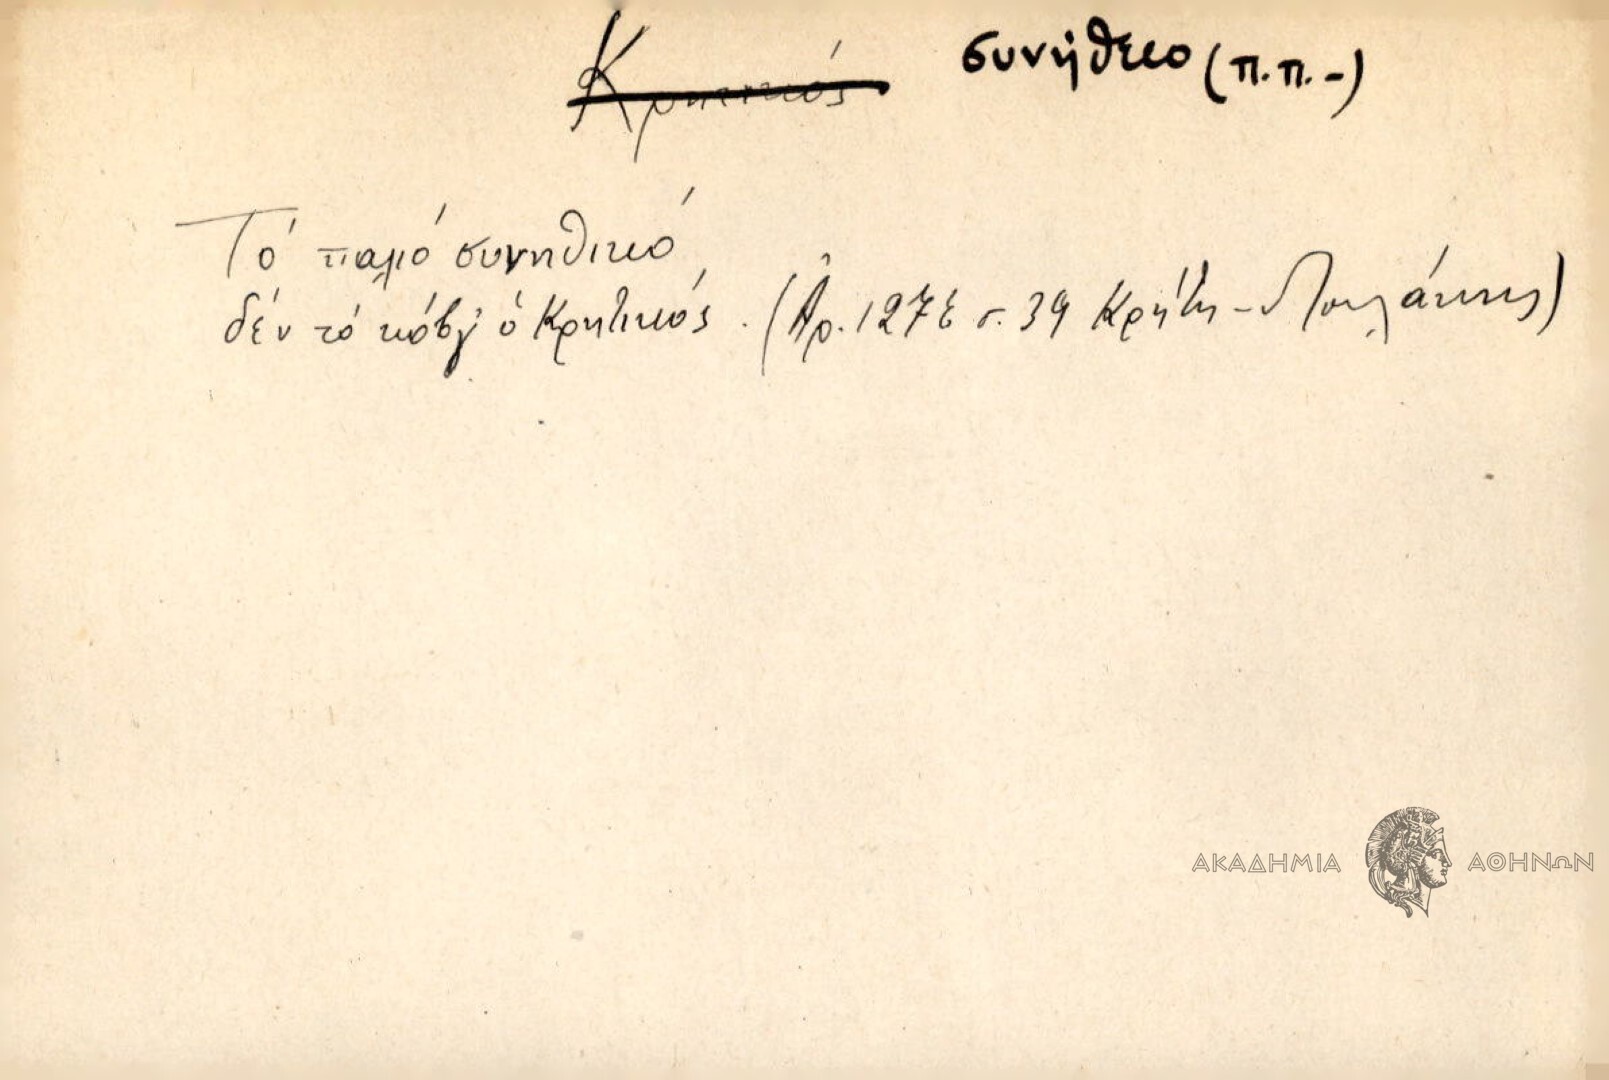 ~~Κρητικός~~ συνήθειο (π.π.-)
Τό παλιό συνηθικιό
δέν τό κόβγ' ὁ Κρητικός. (Ἀρ. 1276 σ. 39 Κρήτη -
ΑΚΑΔΗΜΙΑ ΑΘΗΝΩΝ